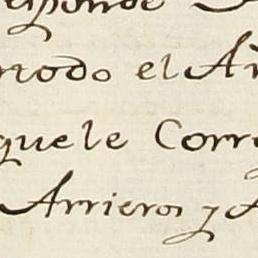 responde
modo el A
que le Corre
Arrieros y A